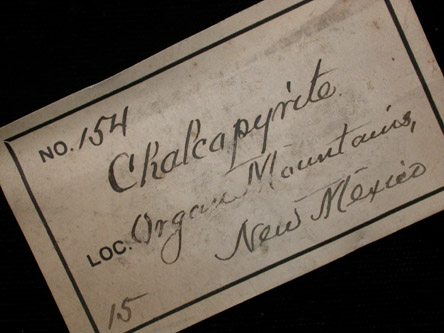 NO. 154
Chalcapyrite.
LOC. Organ Mountains,
New Mexico
15